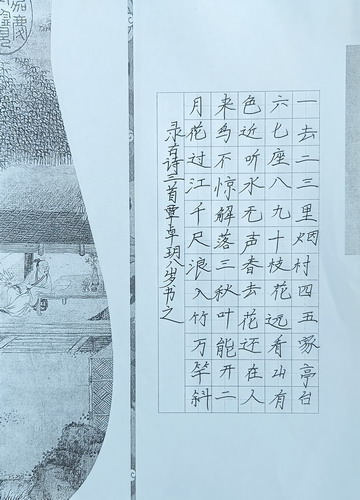 一去二三里烟村四五家亭台
六七座八九十枝花远看山有
色近听水无声春去花还在人
来鸟不惊解落三秋叶能开二
月花过江千尺浪入竹万竿斜
录古诗三首覃卓玥八岁书之